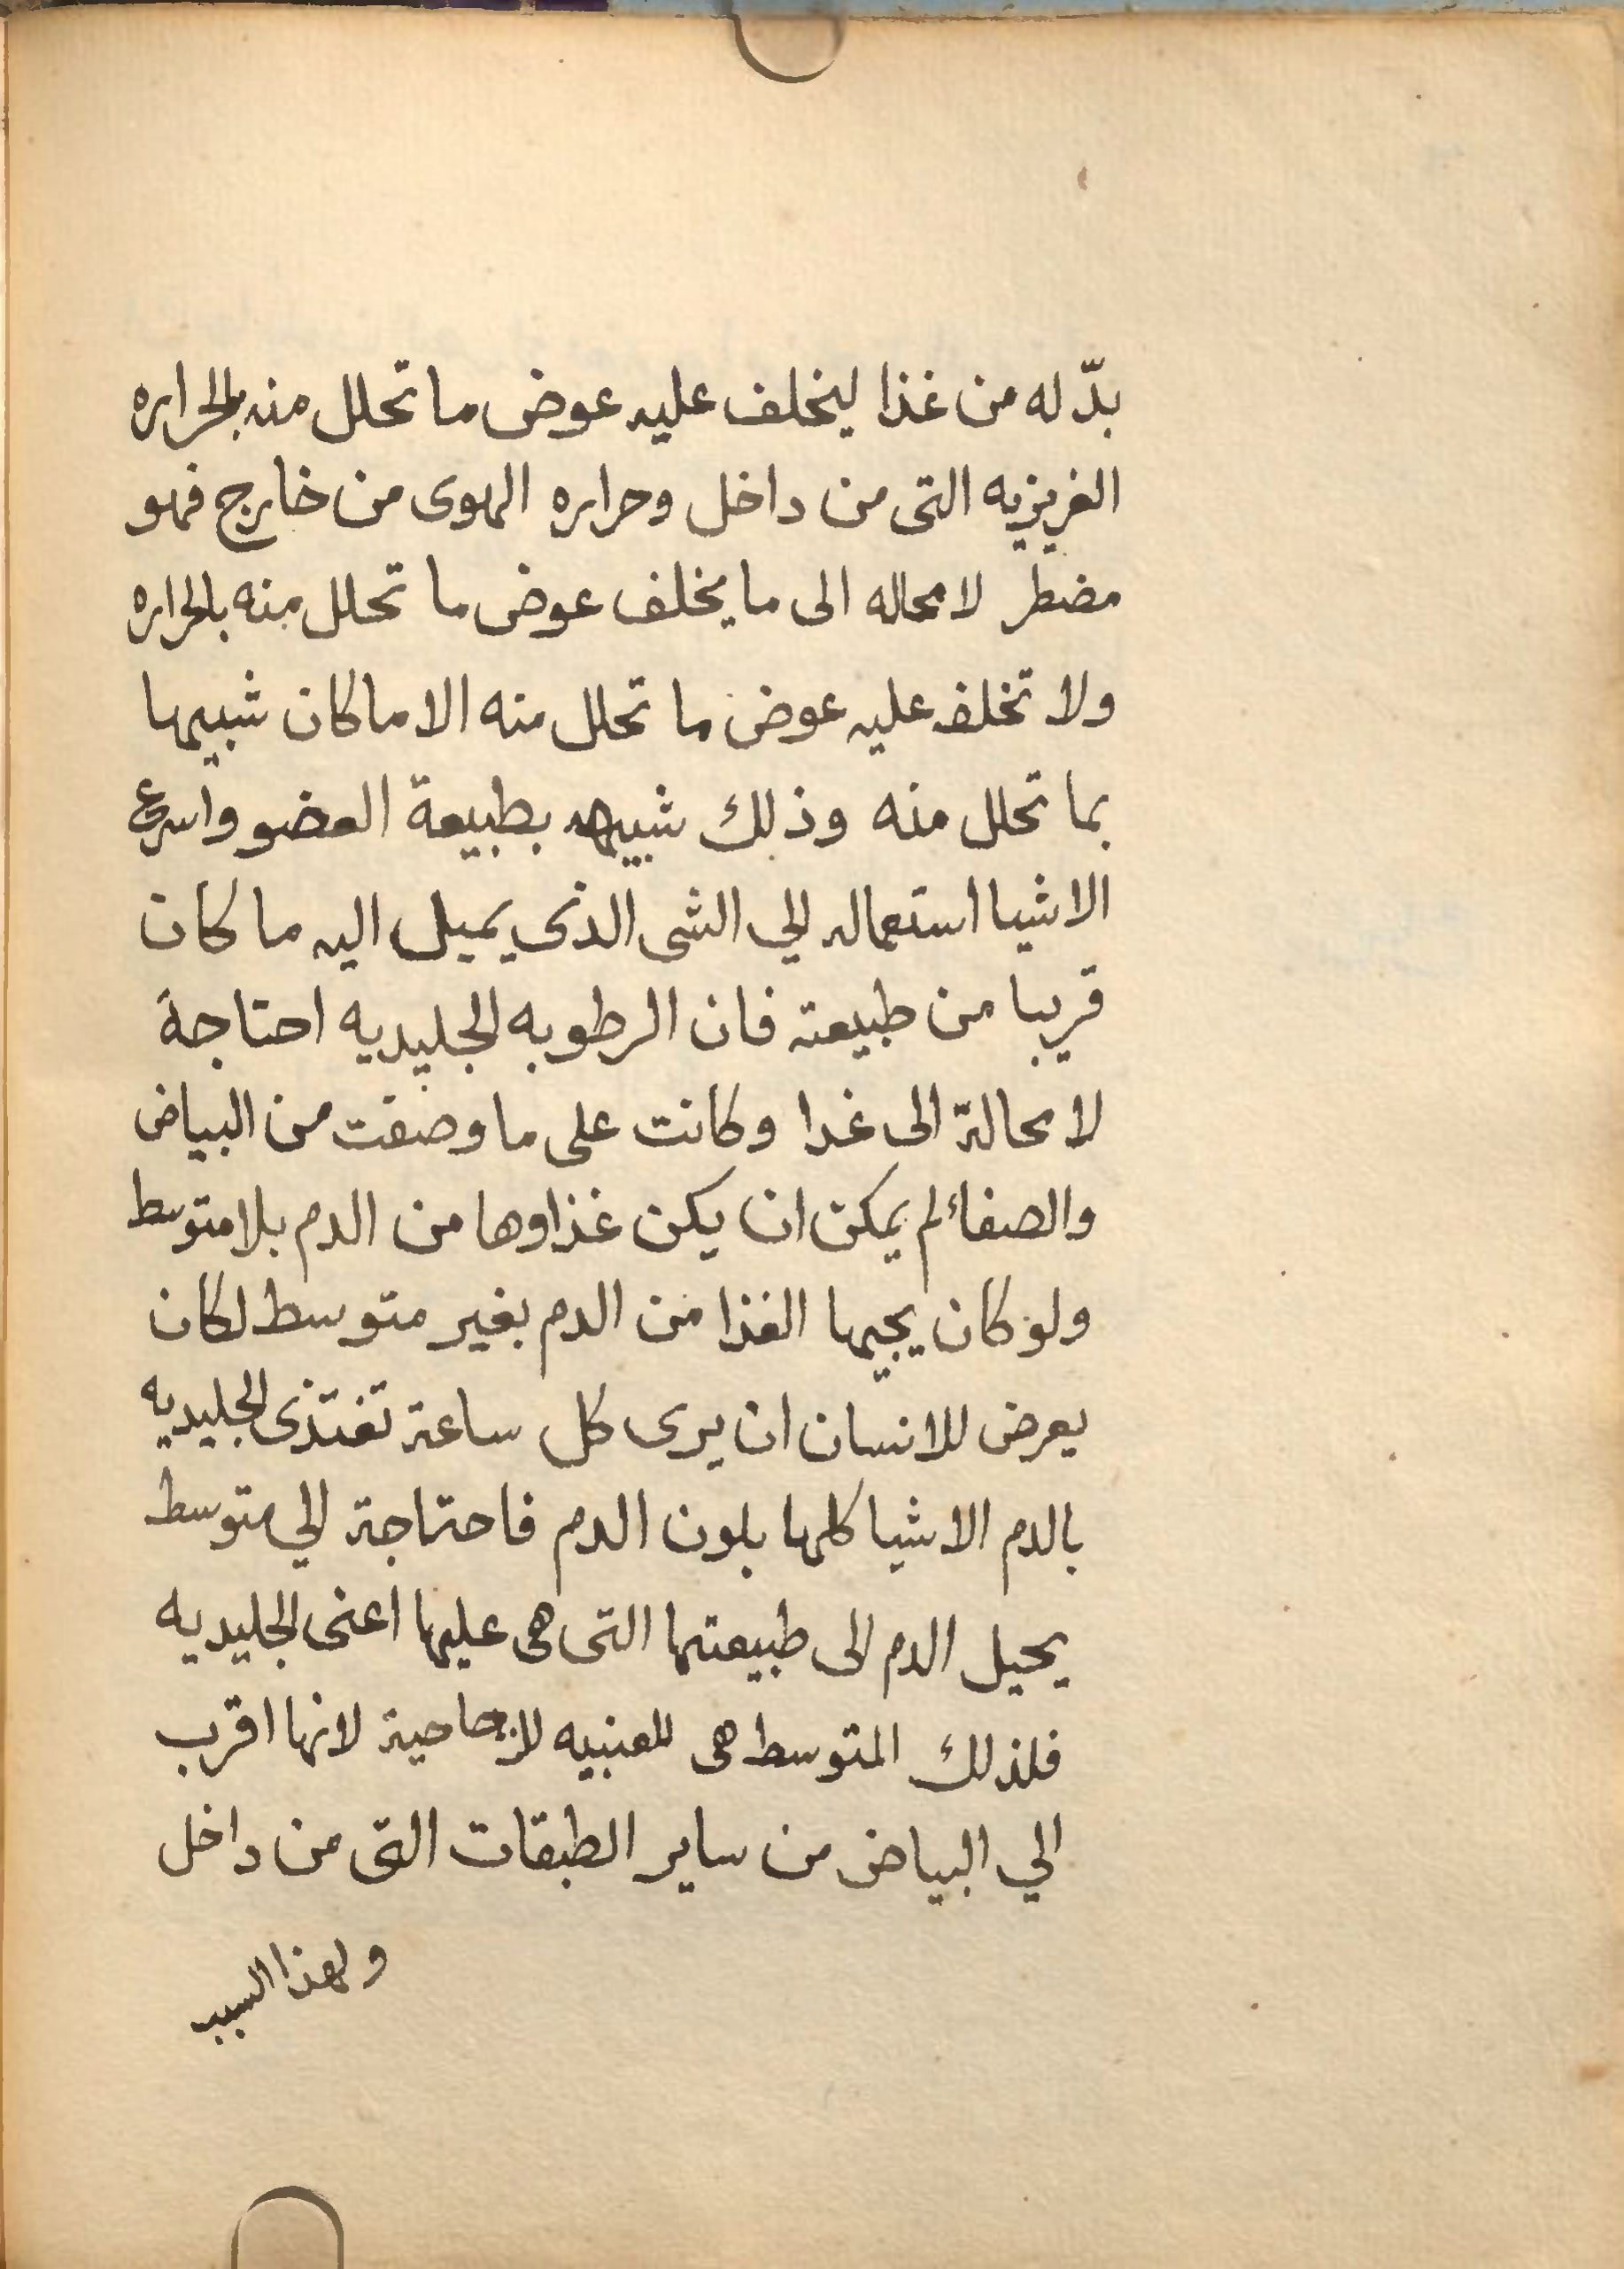 بدّ له من غذا ليخلف عليه عوض ما تحلل منه بالحراره
الغريزيه التى من داخل وحراره الهوى من خارج فهو
مضطر لا محاله الى ما يخلف عوض ما تحلل منه بالحراره
ولا تخلف عليه عوض ما تحلل منه الا ما كان شبيها
بما تحلل منه وذلك شبيهه بطبيعة العضو واسرع
الاشيا استعماله الي الشى الذى يميل اليه ما كان
قريبا من طبيعته فان الرطوبه الجليديه احتاجة
لا محالة الى غدا وكانت على ما وصفت من البياض
والصفاء لم يمكن ان يكن غذاوها من الدم بلا متوسط
ولو كان يجيها الغذا من الدم بغير متوسط لكان
يعرض للانسان ان يرى كل ساعة تغتذى الجليديه
بالدم الاشيا كلها بلون الدم فاحتاجة الي متوسط
يحيل الدم الى طبيعتها التى هى عليها اعنى الجليديه
فلذلك المتوسط هى للعنبيه للزجاجية لانها اقرب
الي البياض من ساير الطبقات التى من داخل
ولهذا السبب